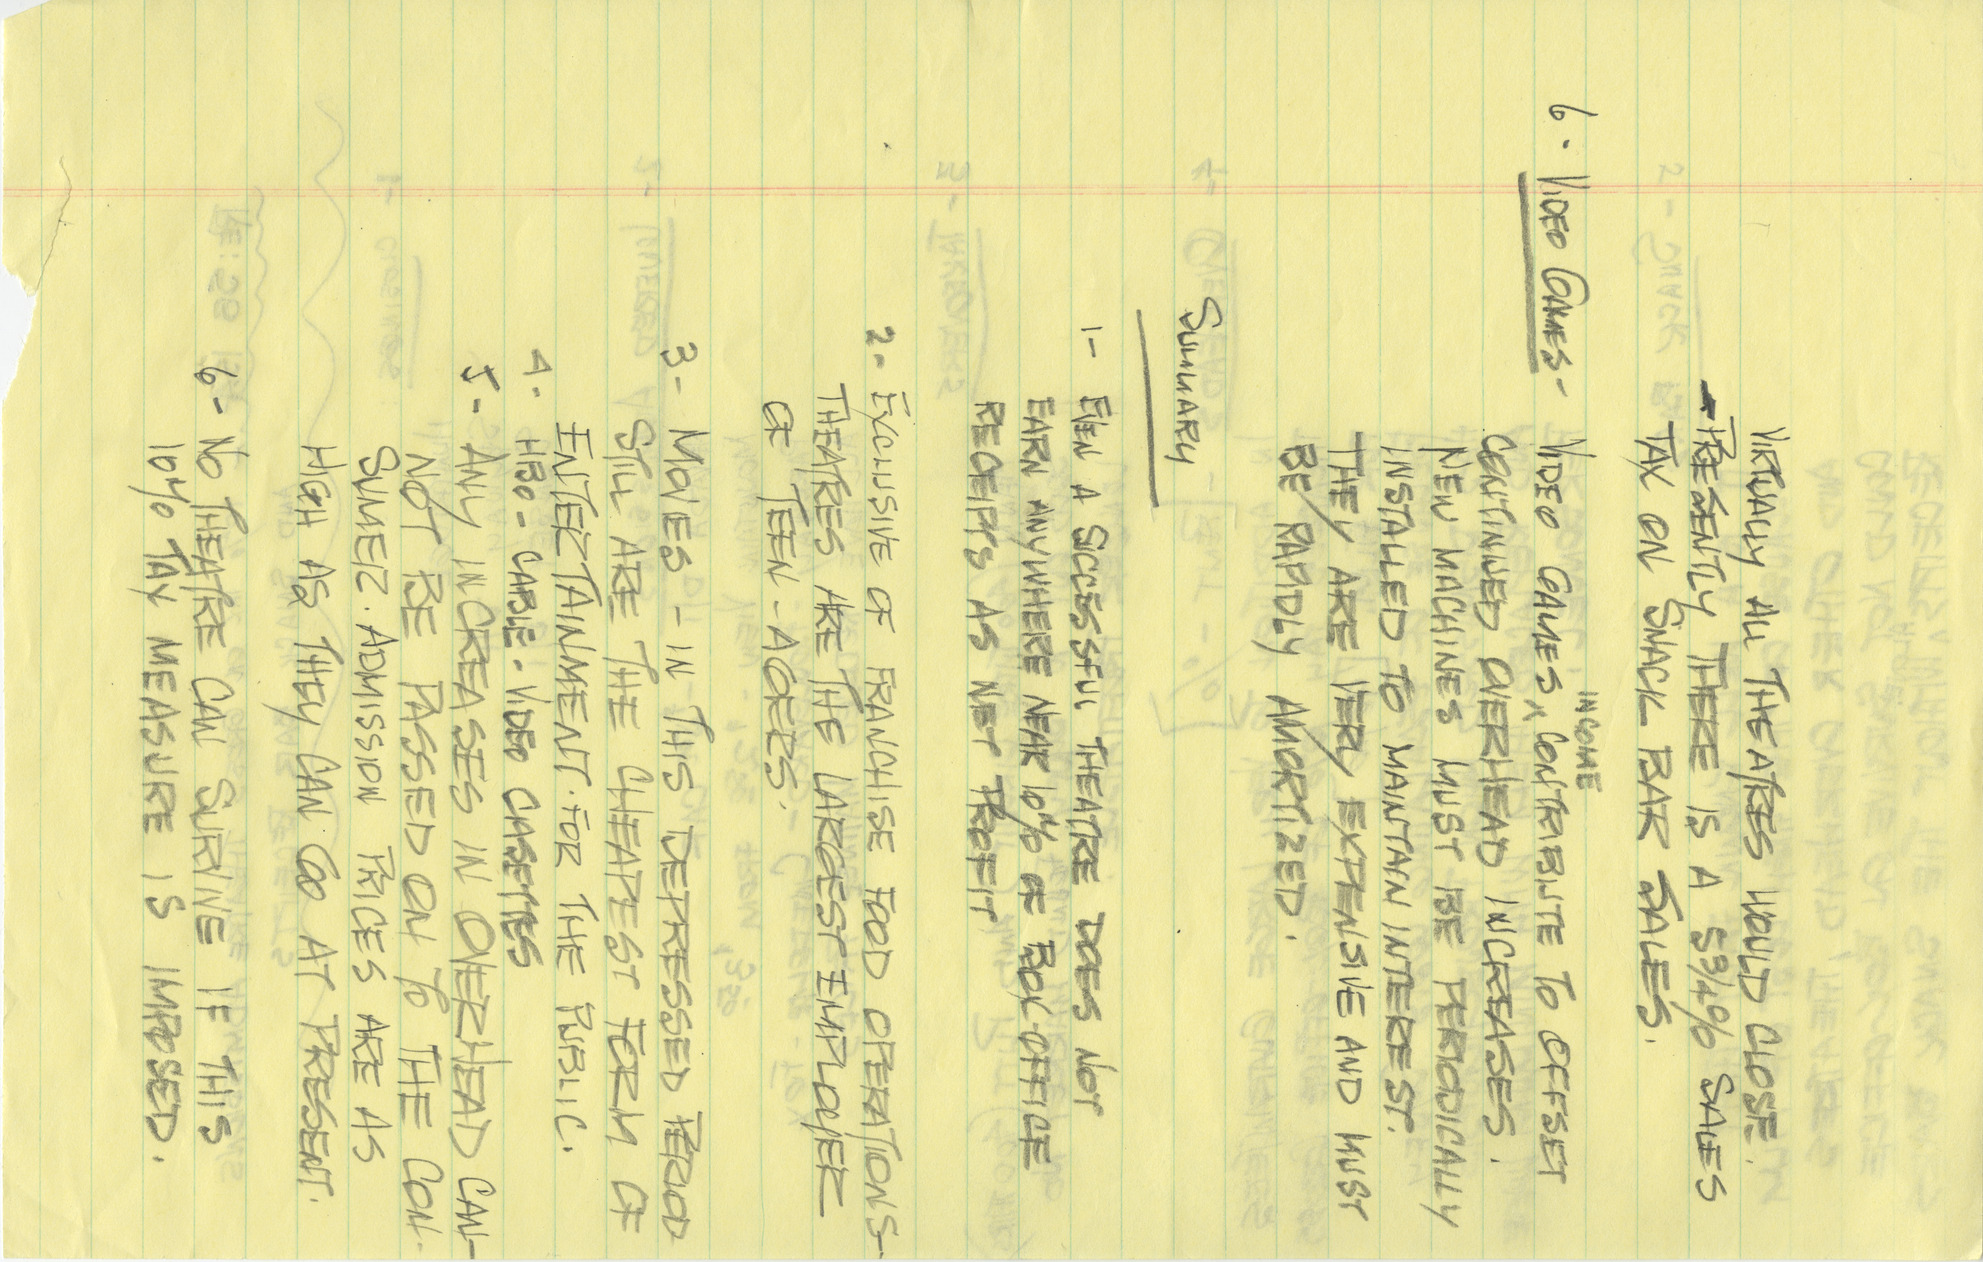 VIRTUALLY ALL THEATRES WOULD CLOSE.
- PRESENTLY THERE IS A 5 3/4% SALES
TAX ON SNACK BAR SALES.
INCOME
6 - VIDEO GAMES - VIDEO GAMES ^ CONTRIBUTE TO OFFSET
CONTINUED OVERHEAD INCREASES.
NEW MACHINES MUST BE PERODICALLY
INSTALLED TO MAINTAIN INTEREST.
THEY ARE VERY EXPENSIVE AND MUST
BE RAPIDLY AMORTIZED.
SUMMARY
1 - EVEN A SUCCESSFUL THEATRE DOES NOT
EARN ANYWHERE NEAR 10% OF BOX-OFFICE
RECEIPTS AS NET PROFIT
2 - EXCLUSIVE OF FRANCHISE FOOD OPERATIONS -
THEATRES ARE THE LARGEST EMPLOYER
OF TEEN-AGERS.
3 - MOVIES - IN THIS DEPRESSED PERIOD
STILL ARE THE CHEAPEST FORM OF
ENTERTAINMENT FOR THE PUBLIC.
4 - HBO - CABLE - VIDEO CASSETTES
5 - ANY INCREASES IN OVERHEAD CAN-
NOT BE PASSED ON TO THE CON-
SUMER. ADMISSION PRICES ARE AS
HIGH AS THEY CAN GO AT PRESENT.
6 - NO THEATRE CAN SURVIVE IF THIS
10% TAX MEASURE IS IMPOSED.